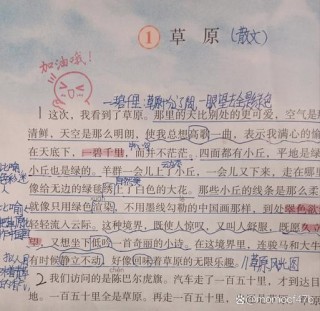 1 草原 (散文)
加油哦!
一碧千里
1 这次,我看到了草原。那里的天比别处的更可爱,空气是
清鲜,天空是那么明朗,使我总想高歌一曲,表示我满心的愉
在天底下,一碧千里,而并不茫茫。四面都有小丘,平地是绿
小丘也是绿的。羊群一会儿上了小丘,一会儿又下来,走在哪里
像给无边的绿毯绣上了白色的大花。那些小丘的线条是那么柔
就像只用绿色渲染,不用墨线勾勒的中国画那样,到处绿色欲
轻轻流入云际。这种境界,既使人惊叹,又叫人舒服,既愿久立
望,又想坐下低吟一首奇丽的小诗。在这境界里,连骏马和大牛
有时候静立不动,好像回味着草原的无限乐趣。//草原风光图
2 我们访问的是陈巴尔虎旗。汽车走了一百五十里,才到达目
地。一百五十里全是草原。再走一百五十里,
momoct47c